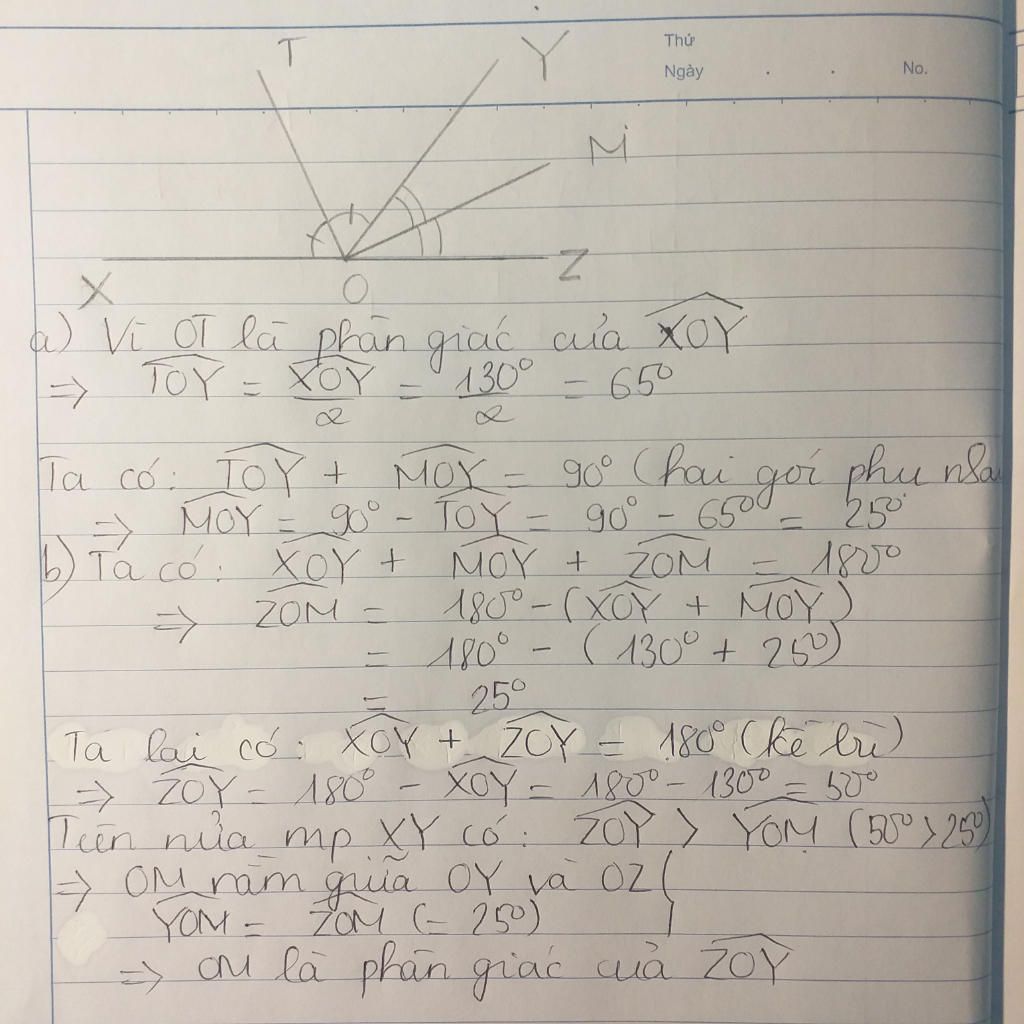 Thứ
Ngày . . No.
T Y
M
X O Z
a) Vì OT là phân giác của XOY
=> TOY = XOY/2 = 130°/2 = 65°
Ta có: TOY + MOY = 90° (hai goí phu nha
=> MOY = 90° - TOY = 90° - 65° = 25°
b) Ta có: XOY + MOY + ZOM = 180°
=> ZOM = 180° - (XOY + MOY)
= 180° - (130° + 25°)
= 25°
Ta lại có: XOY + ZOY = 180° (kề bù)
=> ZOY = 180° - XOY = 180° - 130° = 50°
Trên nửa mp XY có: ZOY > YOM (50° > 25°)
=> OM nằm giữa OY và OZ }
YOM = ZOM (= 25°)
=> OM là phân giác của ZOY